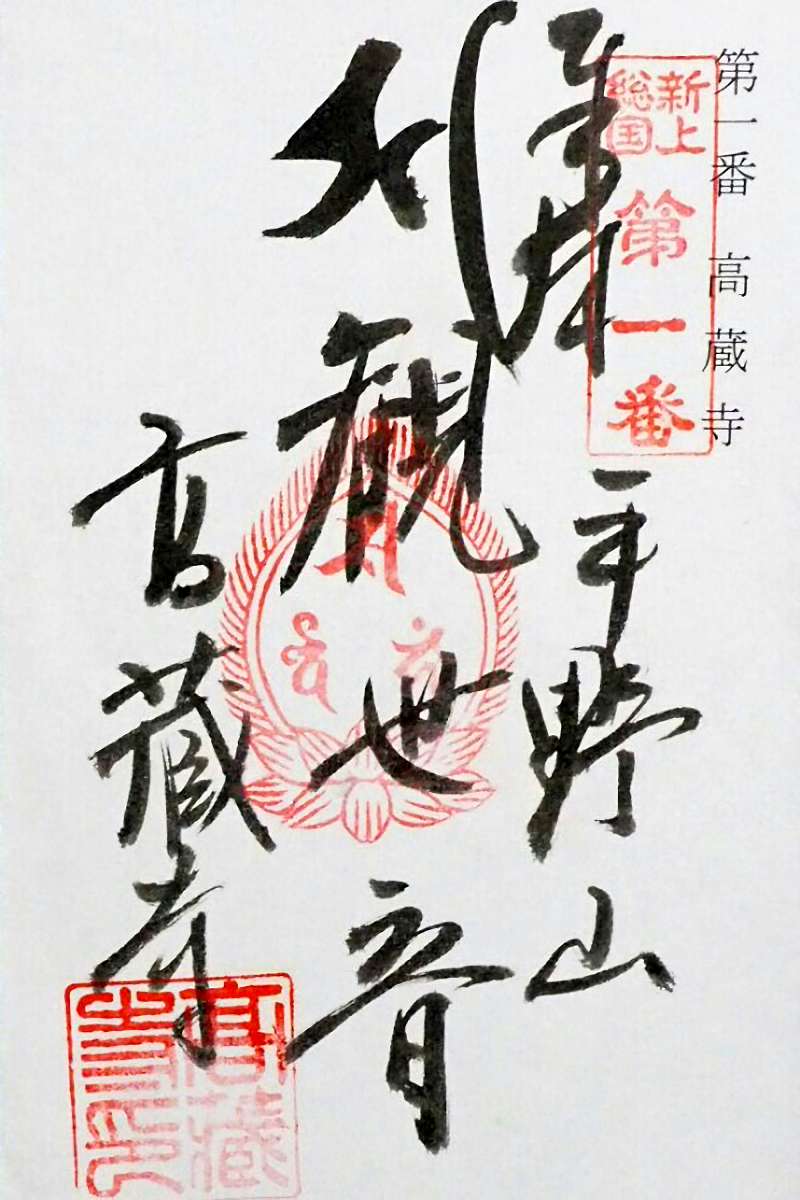 第一番 高蔵寺
新上
総国
第一番
奉拝
平野山
観世音
高蔵寺
高蔵
寺印